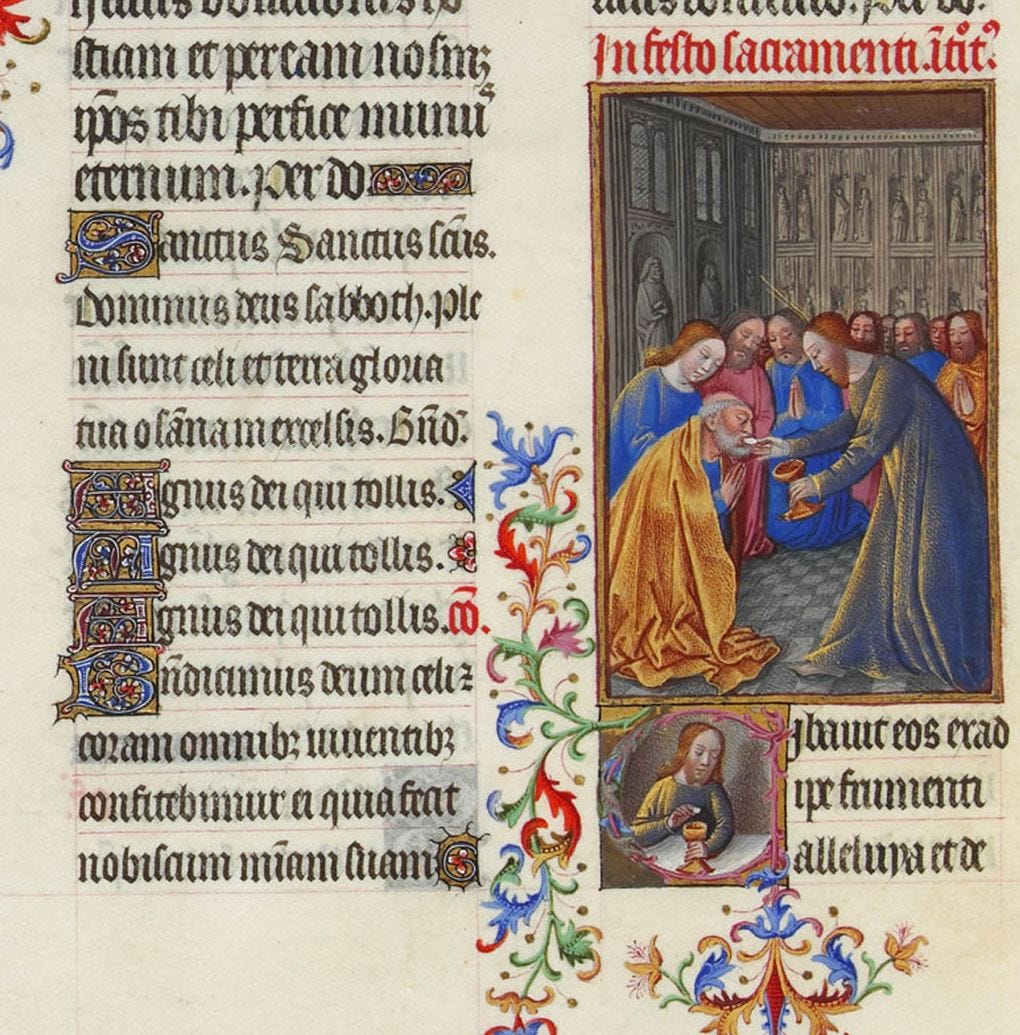 sticam et peream nosmz
ip̄os tibi perfice munu᷒
eternum. Per do
Sanctus Sanctus sc̄us.
Dominus deus sabboth. Ple
ni sunt celi et terra gloria
tua osāna in excelsis. Bn̄d̄.
Agnus dei qui tollis.
Agnus dei qui tollis.
Agnus dei qui tollis. cō.
Bn̄dicimus deum celi z
coram omnibz uiuentibz
confitebimur ei quia fecit
nobiscum mīam suam
In festo sacramenti. ītͦit᷒
Cibauit eos ex ad
ipe frumenti
alleluya et de